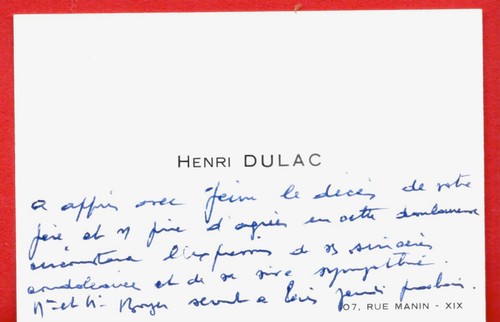 HENRI DULAC
a appris avec peine le décès de votre
père et vous prie d'agréer en cette douloureuse
circonstance l'expression de ses sincères
condoléances et de sa vive sympathie.
Mr et Me seront à Paris jeudi prochain.
07, RUE MANIN - XIX